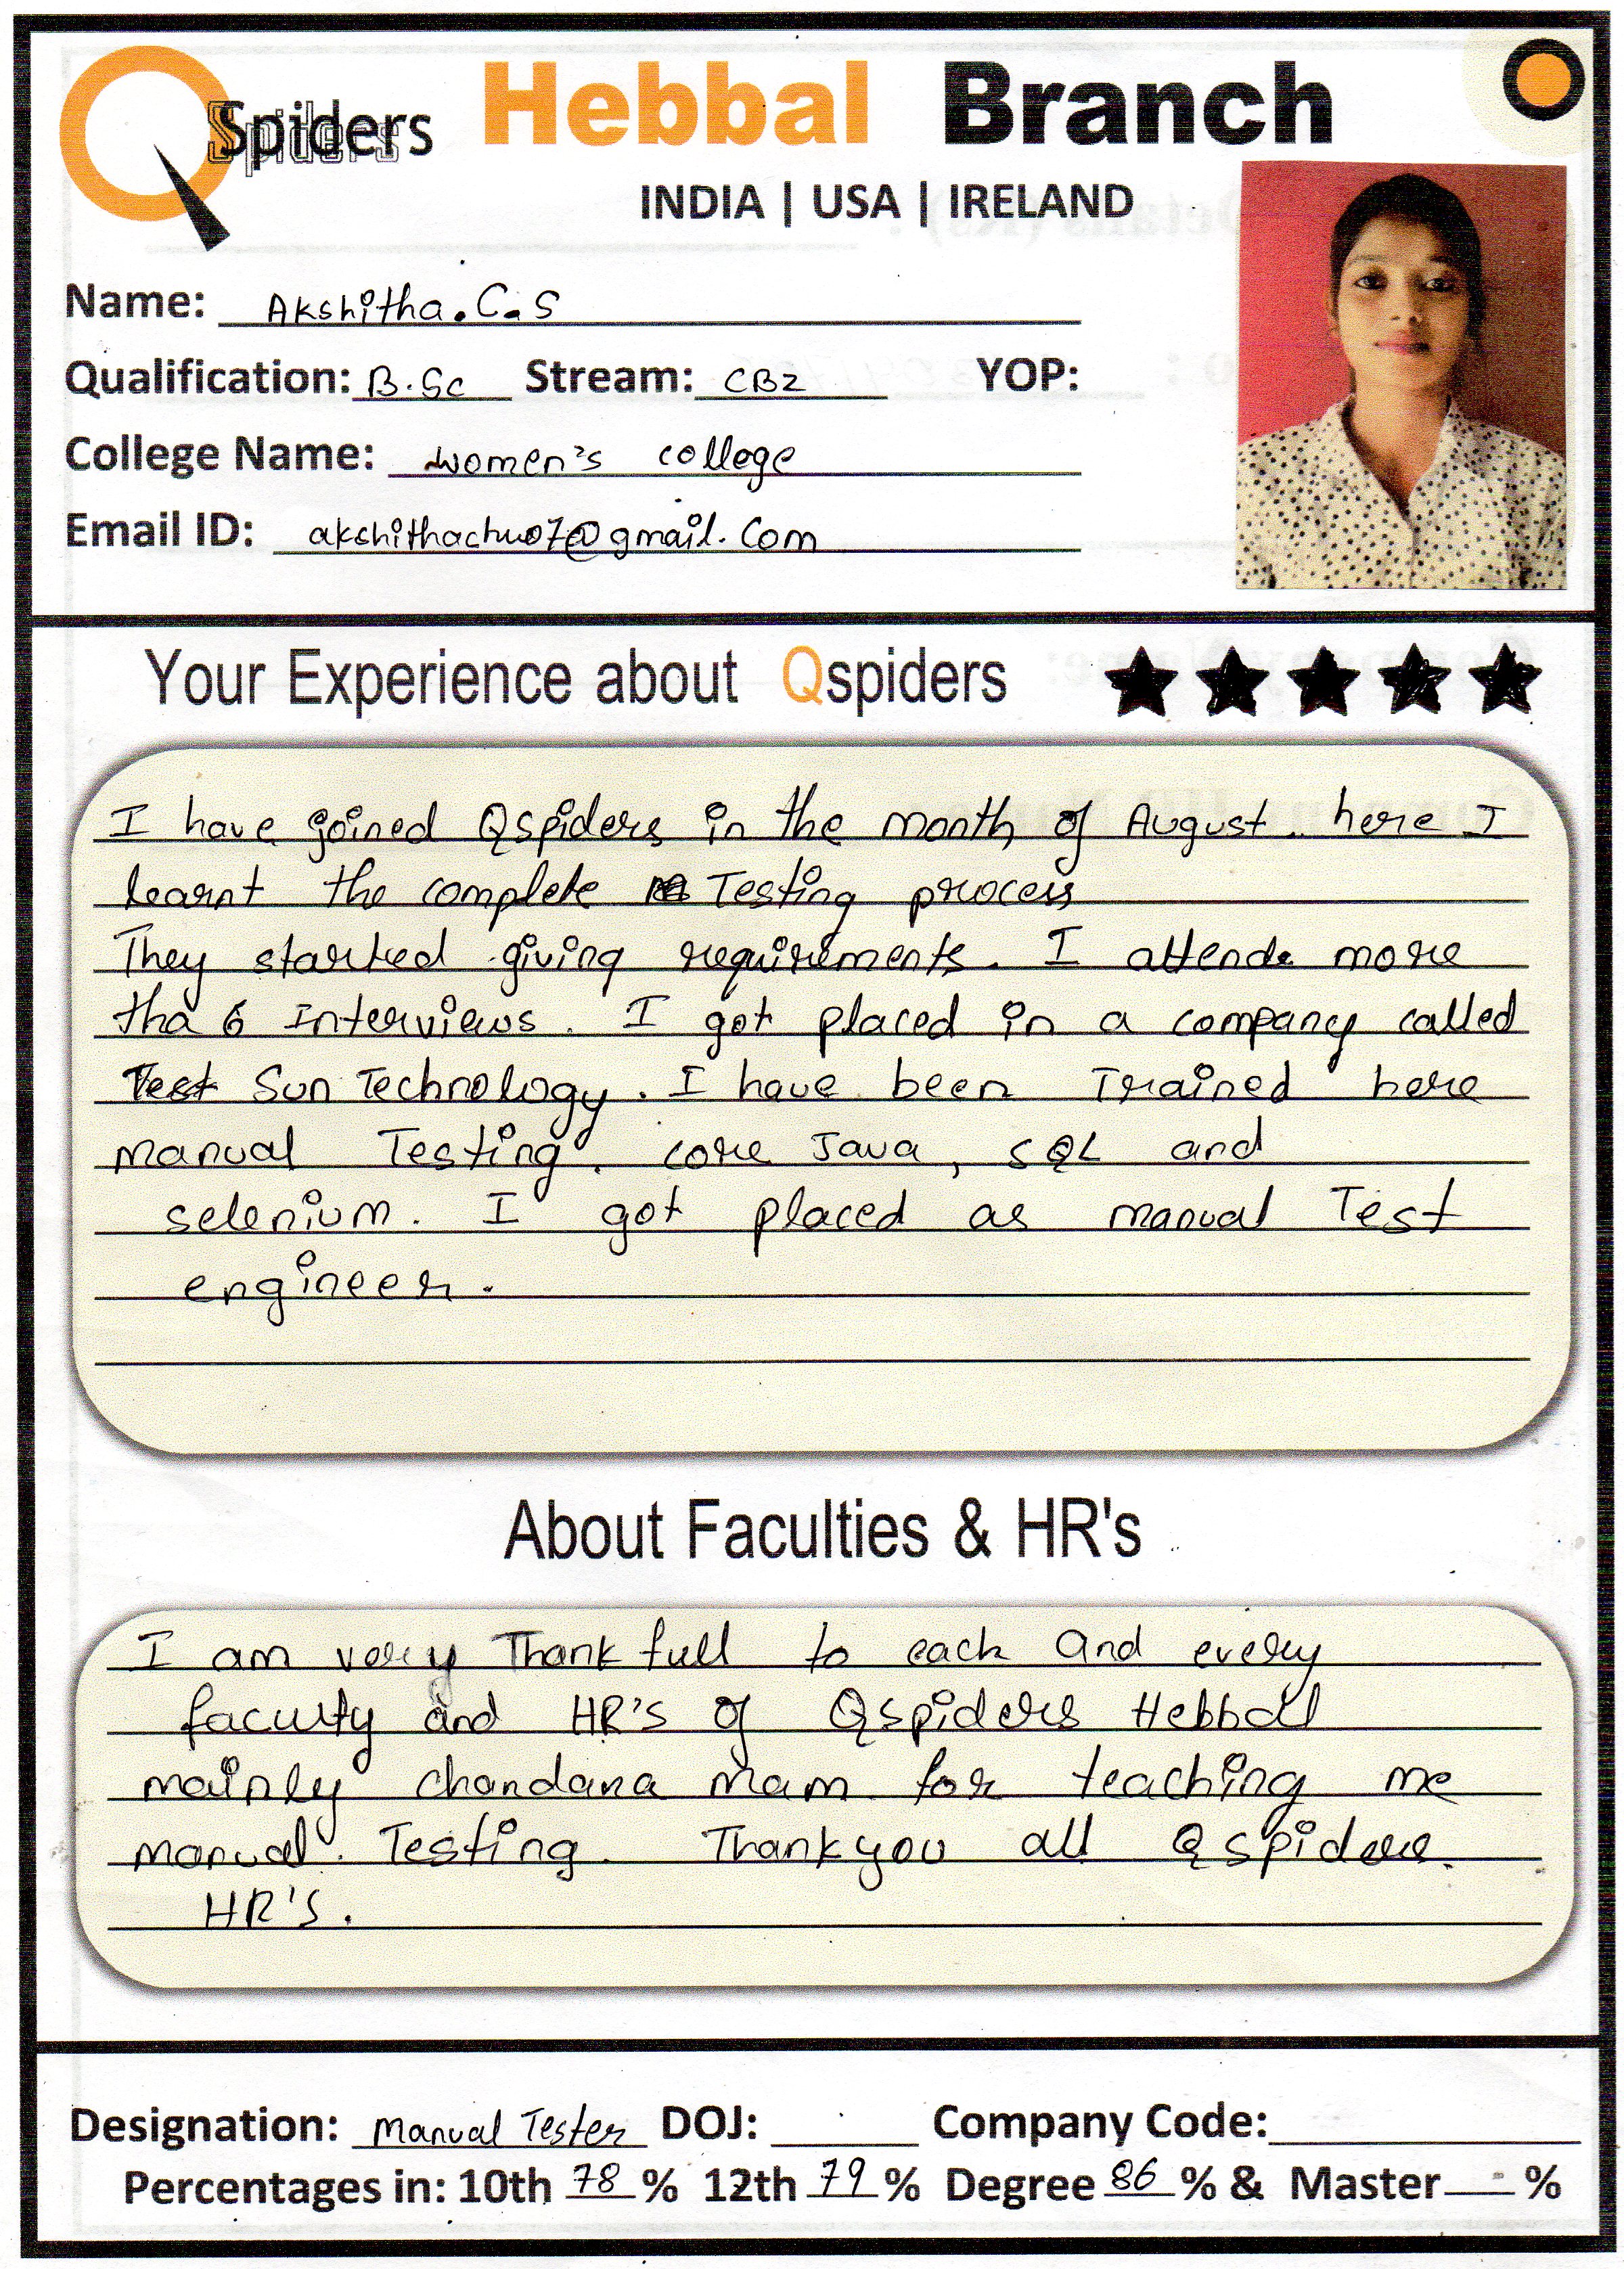 QSpiders Hebbal Branch
INDIA | USA | IRELAND
Name: Akshitha.C.S
Qualification: B.Sc Stream: CBZ YOP:
College Name: women's college
Email ID: @gmail.com
Your Experience about Qspiders
I have joined Qspiders in the month of August. here I
learnt the complete Testing process
They started giving requirements. I attende more
tha 6 Interviews. I got placed in a company called
Test Sun Technology. I have been Trained here
manual Testing, core Java, SQL and
selenium. I got placed as manual Test
engineer.
About Faculties & HR's
I am very Thank full to each and every
faculty and HR's of Qspiders Hebbal
mainly chandana mam for teaching me
manual Testing. Thankyou all Qspiders.
HR's.
Designation: Manual Tester DOJ: Company Code:
Percentages in: 10th 78 % 12th 79 % Degree 86 % & Master - %